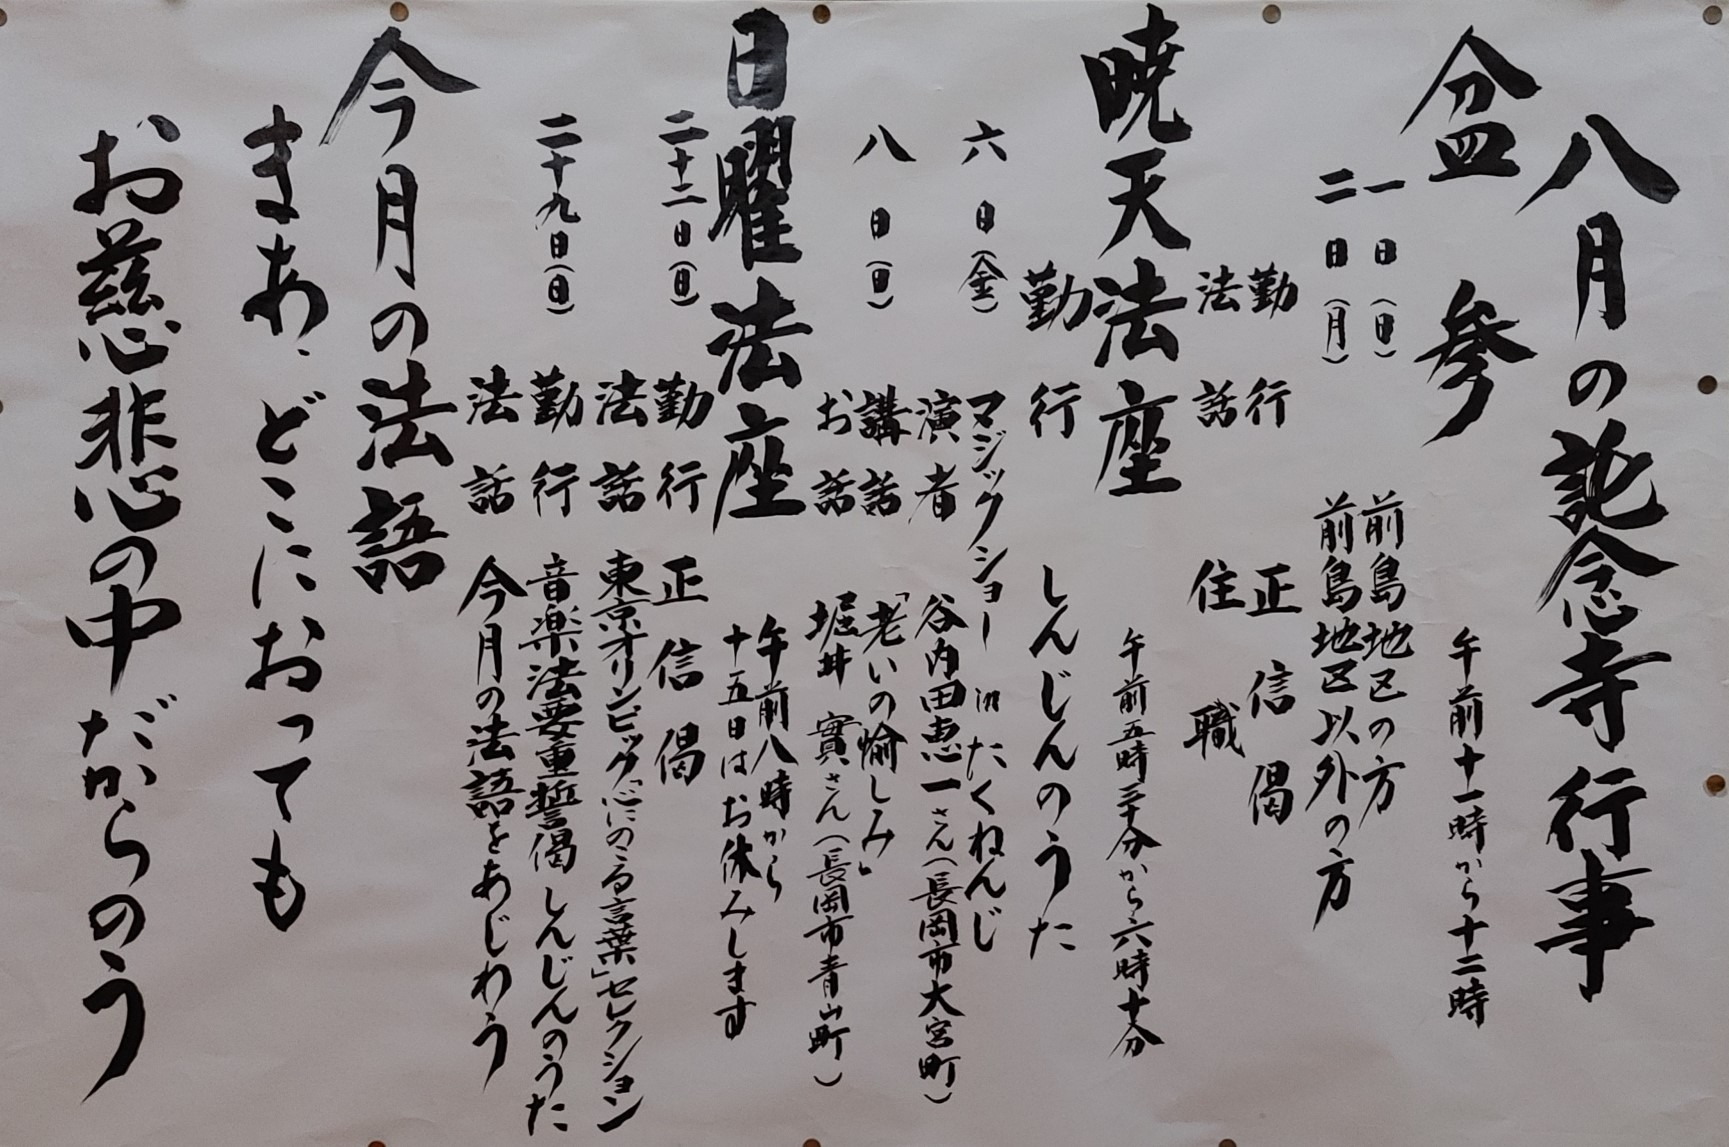 八月の託念寺行事
盆参 午前十一時から十二時
一日(日) 前島地区の方
二日(月) 前島地区以外の方
勤行 正信偈
法話 住職
暁天法座 午前五時三十分から六時十分
勤行 しんじんのうた
六日(金) マジックショー in たくねんじ
演者 谷内田恵一さん(長岡市大宮町)
八日(日) 講話 「老いの愉しみ」
お話 堀井 實さん(長岡市青山町)
日曜法座 午前八時から
十五日はお休みします
二十二日(日) 勤行 正信偈
法話 東京オリンピック「心にのこる言葉」セレクション
二十九日(日) 勤行 音楽法要重誓偈 しんじんのうた
法話 今月の法語をあじわう
今月の法語
まあ、どこにおっても
お慈悲の中だからのう